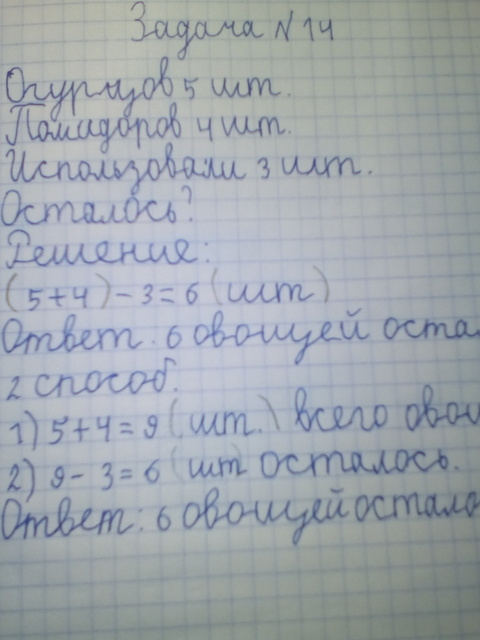 Задача №14
Огурцов 5 шт.
Помидоров 4 шт.
Использовали 3 шт.
Осталось?
Решение:
(5+4)-3=6(шт)
Ответ: 6 овощей оста
2 способ.
1) 5+4=9(шт.) всего овощ
2) 9-3=6(шт) осталось.
Ответ: 6 овощей остало